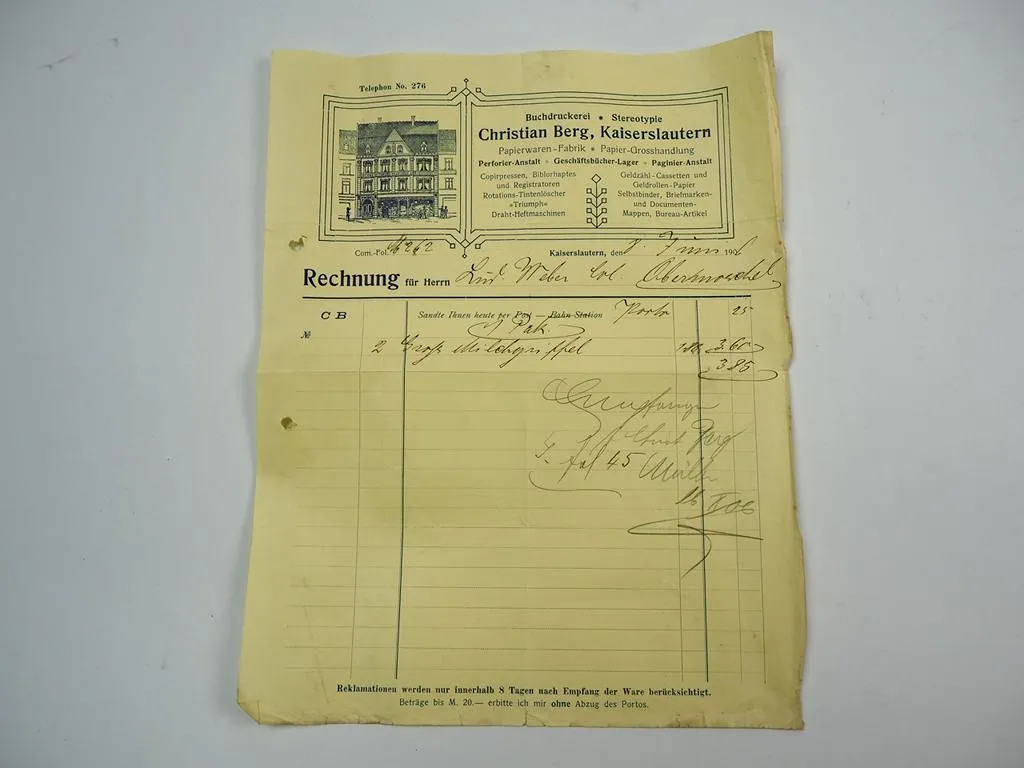 Telephon No. 276
Buchdruckerei * Stereotypie
Christian Berg, Kaiserslautern
Papierwaren-Fabrik * Papier-Grosshandlung
Perforier-Anstalt * Geschäftsbücher-Lager * Paginier-Anstalt
Copirpressen, Biblorhaptes
und Registratoren
Rotations-Tintenlöscher
»Triumph«
Draht-Heftmaschinen
Geldzähl-Cassetten und
Geldrollen-Papier
Selbstbinder, Briefmarken-
und Documenten-
Mappen, Bureau-Artikel
Com.-Fol.
Kaiserslautern, den 8. Juni 190
Rechnung für Herrn Lud. Weber Obermoschel
CB Sandte Ihnen heute per Post — Bahn-Station Porto 25
№ 1 Pak.
2 Groß 3.60
3.85
45 Müller
Reklamationen werden nur innerhalb 8 Tagen nach Empfang der Ware berücksichtigt.
Beträge bis M. 20.— erbitte ich mir ohne Abzug des Portos.